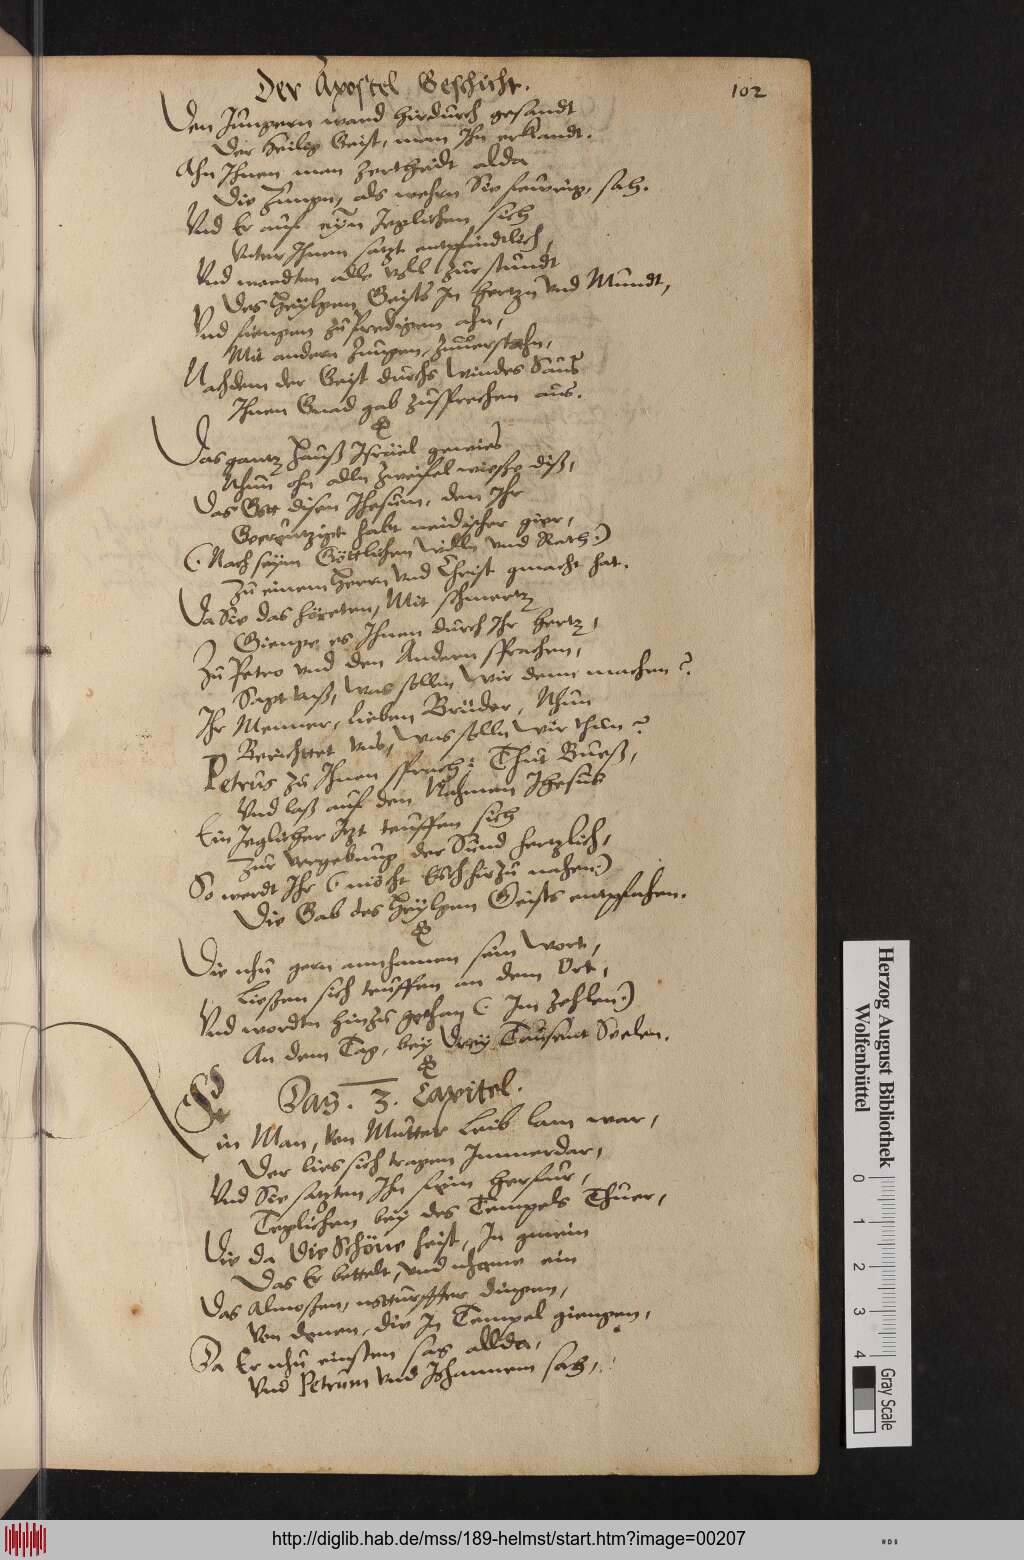 Der Apostel Geschicht.
102
Den Jungern ward hirdurch gesandt
Der Heilig Geist, man Ihn erkandt.
Ahn Ihnen man zertheilt alda
Die Zungen, als wehrn Sie fewrig, sah.
Vnd Er auf eÿn Jeglichen sich
Vnter Ihnen satzt entpfindtlich,
Vnd wordten alle voll zur stundt
Des Heÿlgen Geists In Hertzn vnd Mundt,
Vnd fiengen zu Predigen ahn,
Mit andern Zungen, zuuerstehn,
Nachdem der Geist durchs Windes Saus
Ihnen Gnad gab zusprechen aus.
Das gantz Hauß Israel gewies
Nhun ohn alln Zweifel wiesse diß,
Das Gott disen Ihesum, den Ihr
Gecreutziget habt neidischer gier,
(: Nach seÿm Göttlichen Willn vnd Rath :)
Zu einem Herrn vnd Christ gmacht hat.
Da Sie das höreten, Mit schmertz
Gienge es Ihnen durch Ihr Hertz,
Zu Petro vnd den Andern sprachen,
Sagt vnß, Was solln Wir denn machen?
Ihr Menner, lieben Brüder, Nhun
Berichttet vns, Was solln Wir thun?
Petrus zu Ihnen sprach: Thut Bueß,
Vnd laß auf den Nahmen Ihesus
Ein Jeglicher Itzt teuffen sich
Zur vergebung der Sünd hertzlich,
So werdt Ihr (: nicht Euch hirzu nahen :)
Die Gab des Heÿlgen Geists entpfahen.
Die nhu gern annhamen sein Wort,
Liessen sich teuffen an dem Ort,
Vnd wordtn hinzu gethan (: Im zehlen :)
An dem Tag, beÿ Dreÿ Tausent Seelen.
Das . 3. Capitel.
Ein Man, von Mutter Leib lam war,
Der lies sich tragen Immerdar,
Vnd Sie satzten Ihn fein herfür,
Teglichen beÿ des Tempels Thuer,
Die da Die Schöne heist, In gmein
Das Er bettelt, vnd nhame ein
Das Almosßen, notturffter dingen,
Von denen, die In Tempel giengen,
Da Er nhu einsten sas allda,
Vnd Petrum vnd Johannem sah,
Herzog August Bibliothek
Wolfenbüttel
0 1 2 3 4
Gray Scale
http://diglib.hab.de/mss/189-helmst/start.htm?image=00207